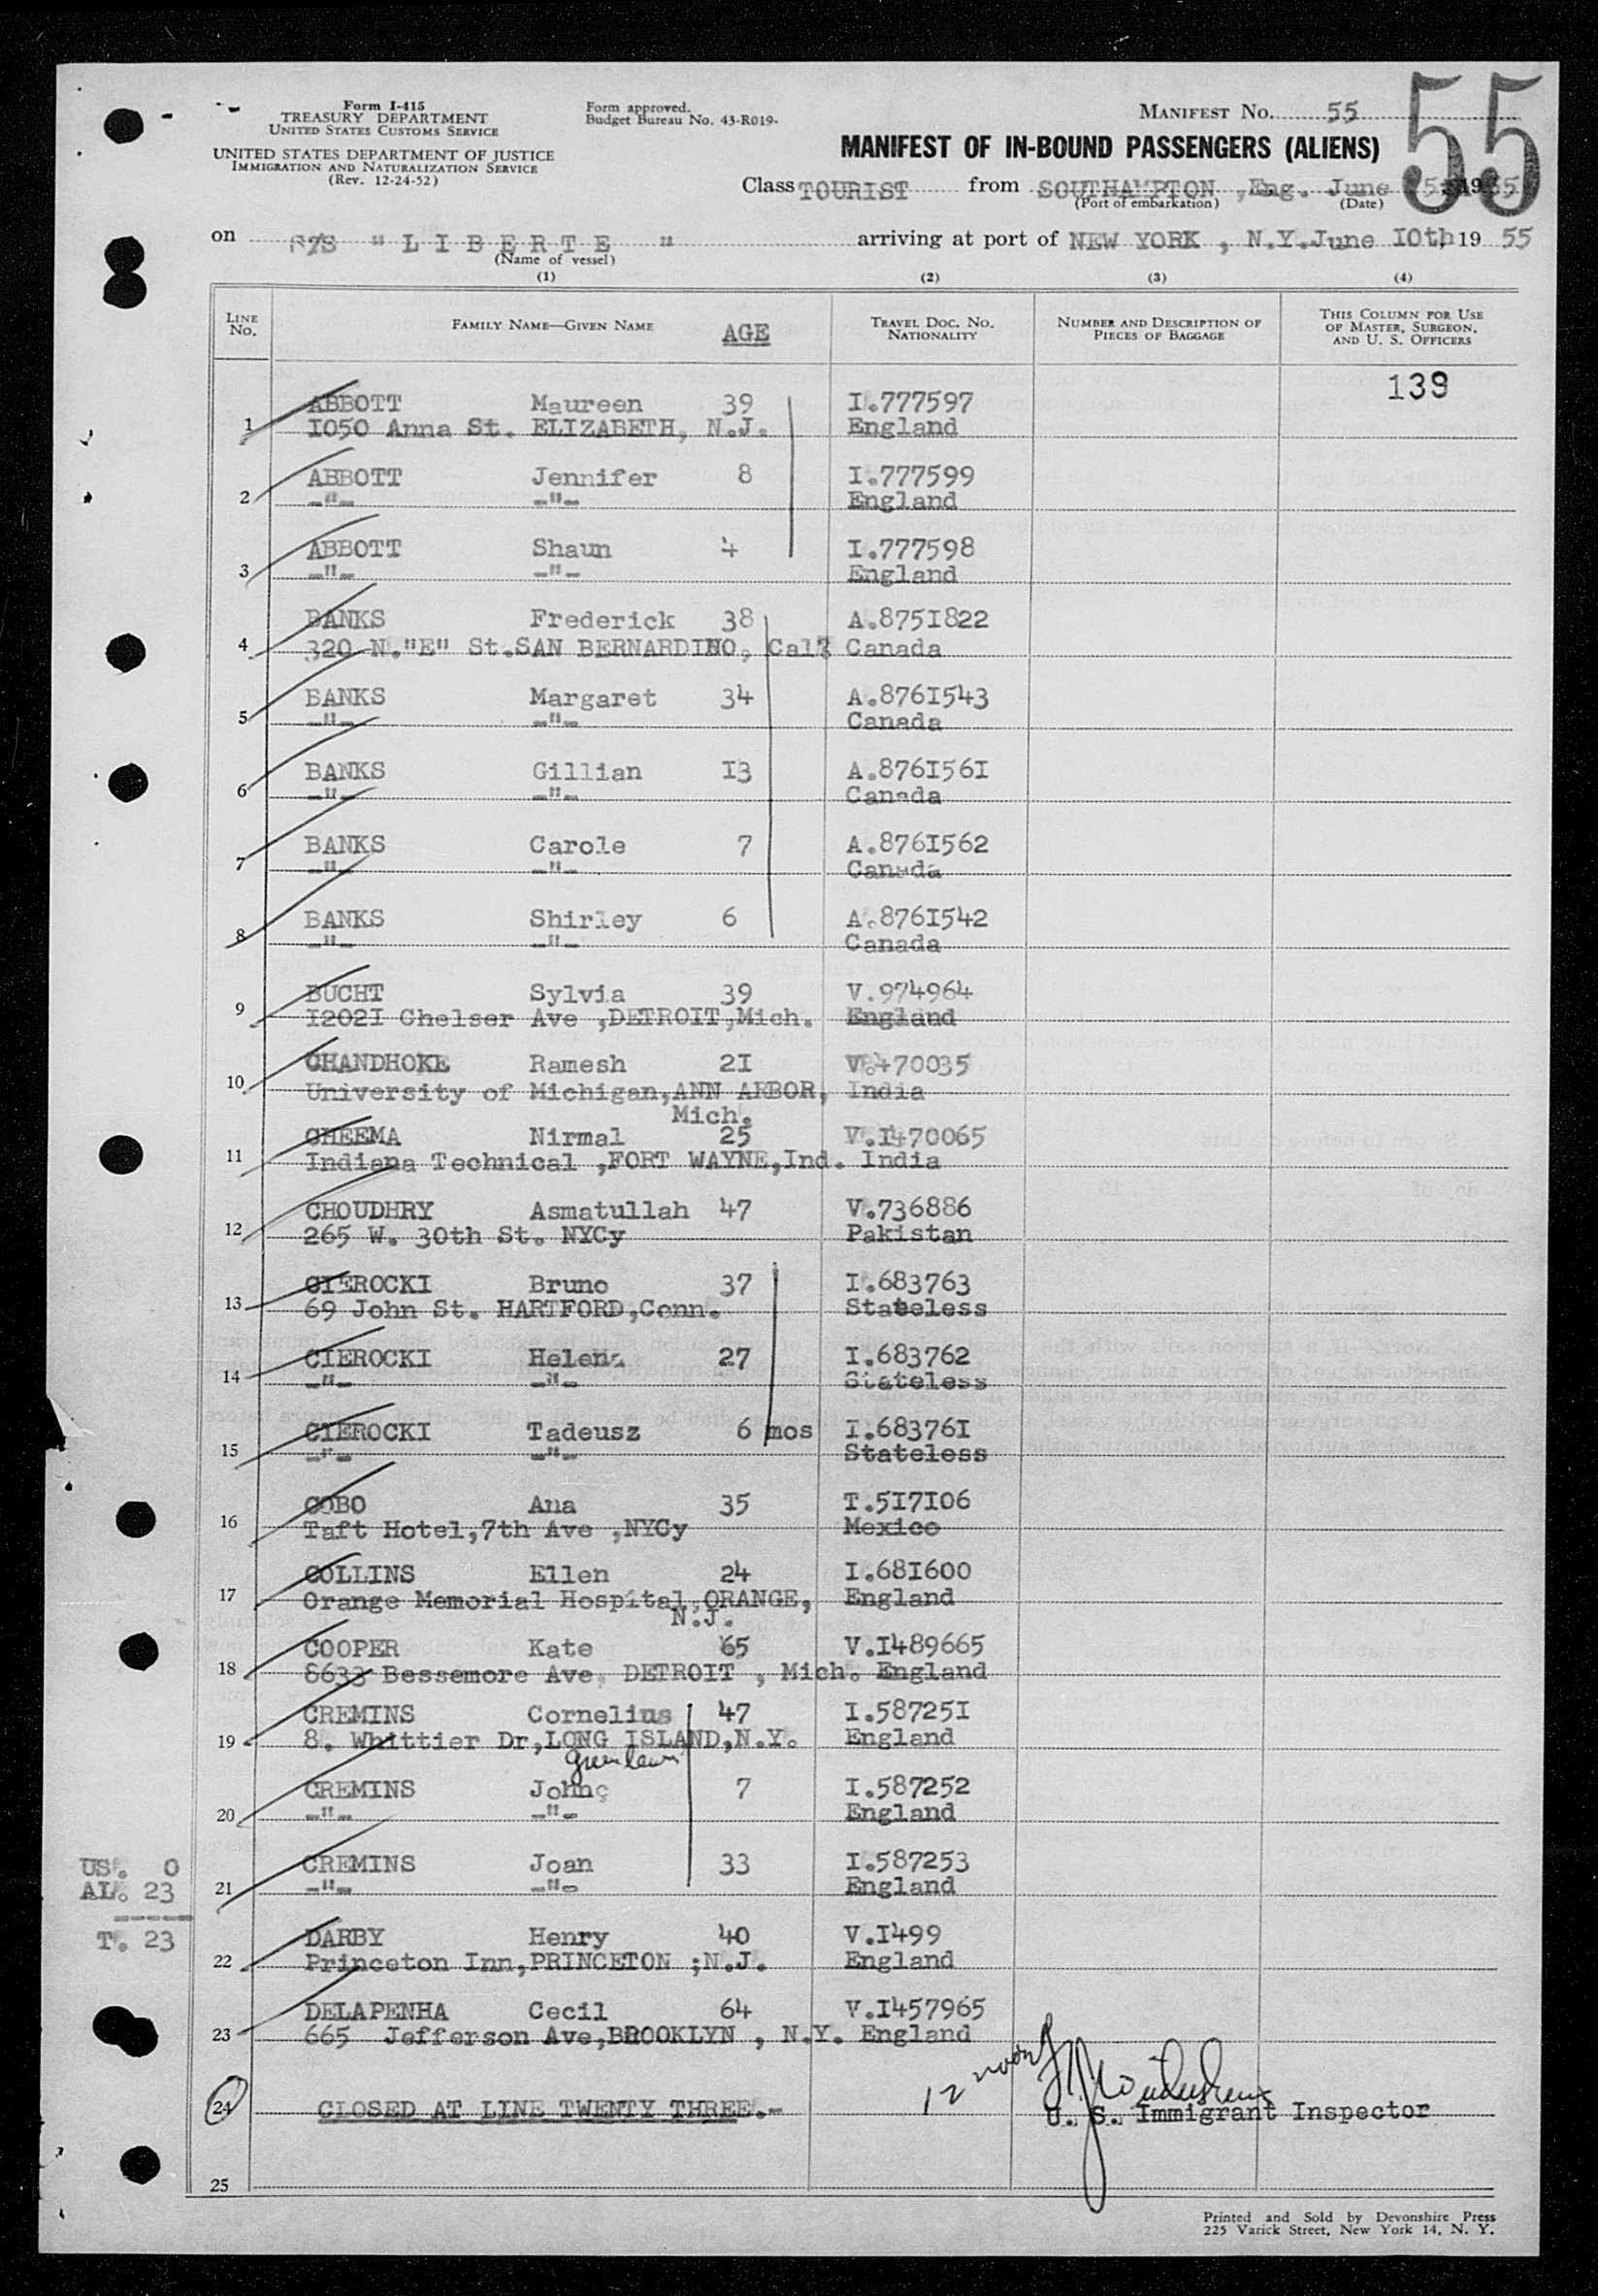 Form I-415
TREASURY DEPARTMENT
UNITED STATES CUSTOMS SERVICE
UNITED STATES DEPARTMENT OF JUSTICE
IMMIGRATION AND NATURALIZATION SERVICE
(Rev. 12-24-52)
Form approved.
Budget Bureau No. 43-R019-
MANIFEST NO. 55
55
MANIFEST OF IN-BOUND PASSENGERS (ALIENS)
Class TOURIST from SOUTHAMPTON ,Eng. June
(Port of embarkation) (Date)
on S/S "LIBERTE" arriving at port of NEW YORK , N.Y. June I0th 19 55
(Name of vessel)
(1) (2) (3) (4)
LINE No. FAMILY NAME—GIVEN NAME AGE TRAVEL DOC. NO. NATIONALITY NUMBER AND DESCRIPTION OF PIECES OF BAGGAGE THIS COLUMN FOR USE OF MASTER, SURGEON, AND U. S. OFFICERS
139
ABBOTT Maureen 39 I.777597
1 I050 Anna St. ELIZABETH, N.J. England
ABBOTT Jennifer 8 I.777599
2 -"- -"- England
ABBOTT Shaun 4 I.777598
3 -"- -"- England
BANKS Frederick 38 A.875I822
4 320 N."E" St.SAN BERNARDINO, Cal. Canada
BANKS Margaret 34 A.876I543
5 -"- -"- Canada
BANKS Gillian I3 A.876I56I
6 -"- -"- Canada
BANKS Carole 7 A.876I562
7 -"- -"- Canada
BANKS Shirley 6 A.876I542
8 -"- -"- Canada
BUCHT Sylvia 39 V.974964
9 I202I Chelser Ave ,DETROIT,Mich. England
CHANDHOKE Ramesh 2I V.470035
10 University of Michigan,ANN ARBOR, India
Mich.
CHEEMA Nirmal 25 V.I470065
11 Indiana Technical ,FORT WAYNE,Ind. India
CHOUDHRY Asmatullah 47 V.736886
12 265 W. 30th St. NYCy Pakistan
CIEROCKI Bruno 37 I.683763
13 69 John St. HARTFORD,Conn. Stateless
CIEROCKI Helena 27 I.683762
14 -"- -"- Stateless
CIEROCKI Tadeusz 6 mos I.68376I
15 -"- -"- Stateless
COBO Ana 35 T.5I7I06
16 Taft Hotel,7th Ave ,NYCy Mexico
COLLINS Ellen 24 I.68I600
17 Orange Memorial Hospital,ORANGE, England
N.J.
COOPER Kate 65 V.I489665
18 8633 Bessemore Ave, DETROIT , Mich. England
CREMINS Cornelius 47 I.58725I
19 8. Whittier Dr,LONG ISLAND,N.Y. England
Greenlawn
CREMINS John 7 I.587252
20 -"- -"- England
CREMINS Joan 33 I.587253
21 -"- -"- England
US. 0
AL. 23
T. 23
DARBY Henry 40 V.I499
22 Princeton Inn,PRINCETON ;N.J. England
DELAPENHA Cecil 64 V.I457965
23 665 Jefferson Ave,BROOKLYN , N.Y. England
12 noon
24 CLOSED AT LINE TWENTY THREE.- U. S. Immigrant Inspector
25
Printed and Sold by Devonshire Press
225 Varick Street, New York 14, N. Y.